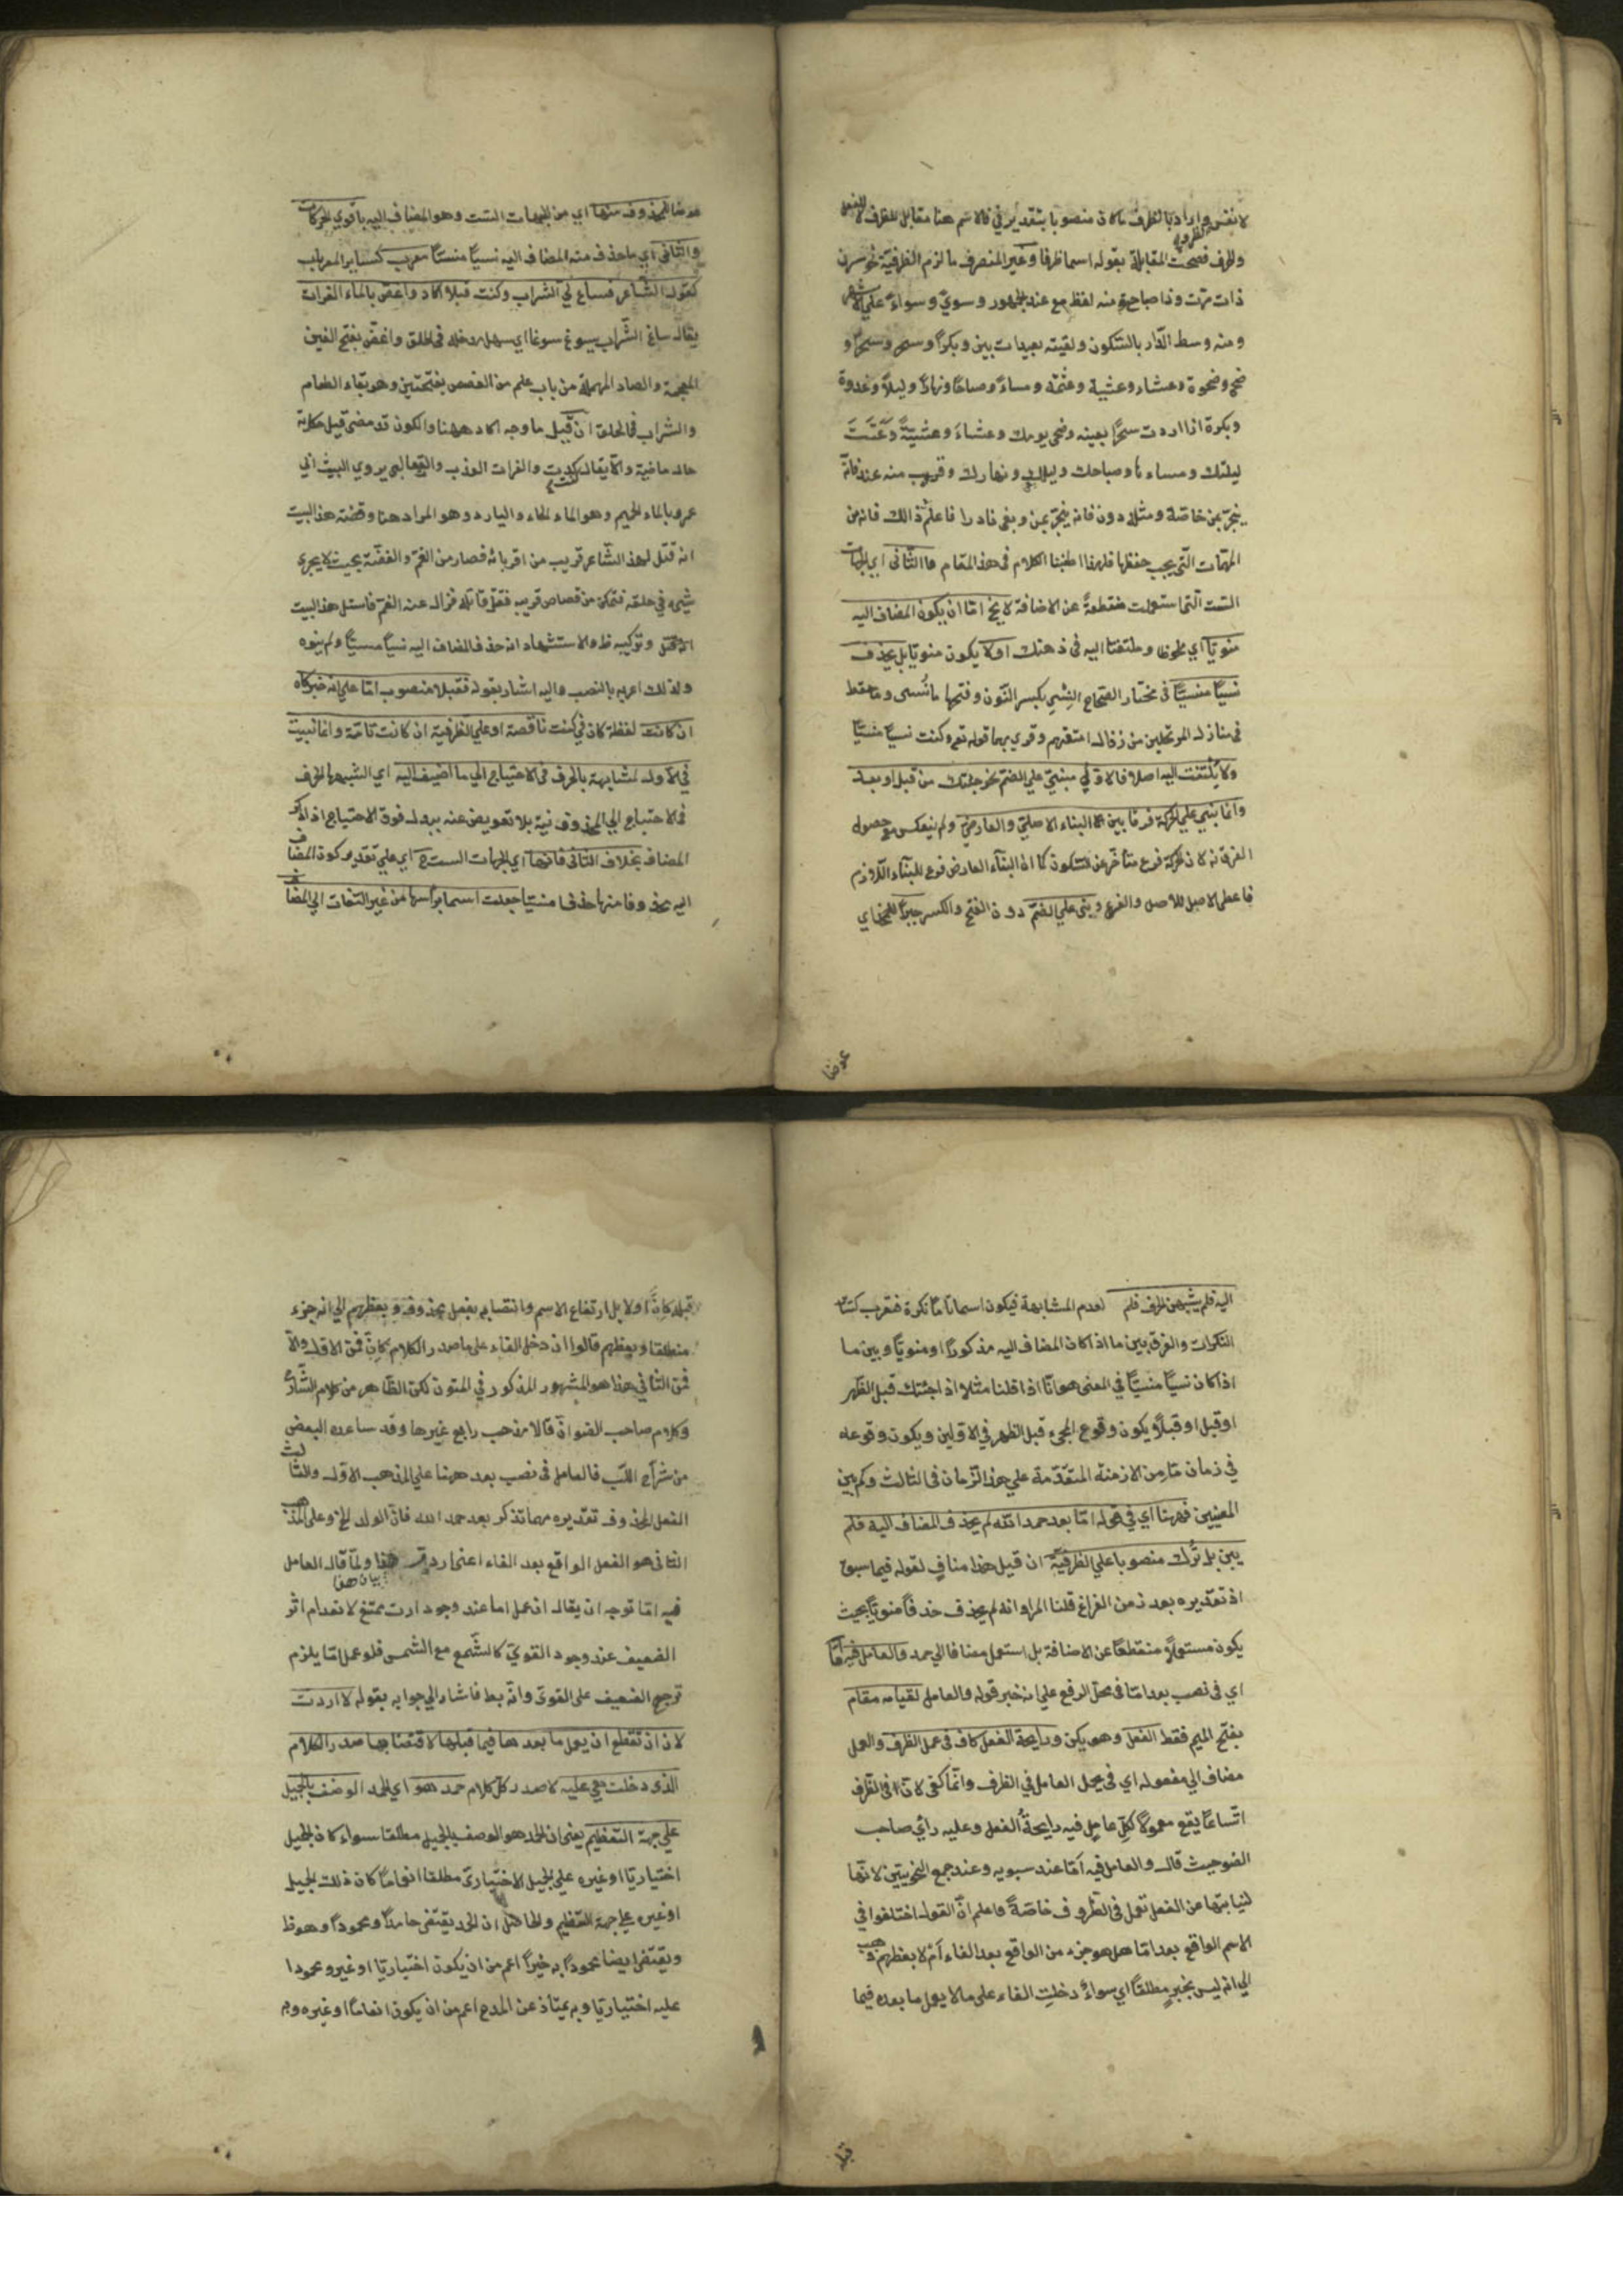 لا نفس واراد بالظرف ماكان منصوبا بتقدير في فالاسم هنا مقابل للظرف لا للفعل
والحرف فصحت المقابلة بقوله اسما ظرفا وغير المنصرف ما لزم الظرفية نحو سرن
ذات مرت وذا صباح منه لفظ مع عند الجمهور وسوي وسواء علي الاشهر
ومنه وسط الدار بالسكون ولقيته بعيدات بين وبكرا وسحر وسحرا و
ضحي وضحوة وعشاء وعشية وعتمة ومساء وصباحا ونهارا وليلا وغدوة
وبكرة اذا اردت سحرا بعينه وضحي يومك وعشاء وعشية وعتمت
ليلتك ومساءنا وصباحك وليلك ونهارك وقريب منه عند فانه
ينجر بمن خاصة ومثله دون فانه ينجر بمن وبفي نادرا فاعلم ذالك فانه من
المهمات التي يجب حفظها فلهذا اطنبنا الكلام في هذا المقام فالثاني اي الجهات
الست التي استعملت منقطعة عن الاضافة لا يخ اما ان يكون المضاف اليه
منويا اي ملحوظا وملتفتا اليه في ذهنك اولا يكون منويا بل يحذف
نسيا منسيا في مختار الصحاح النسي بكسر النون وفتحها ما نسي وما سقط
في منازل المرتحلين من رذال امتعتهم وقري بهما قوله تع وكنت نسيا منسيا
ولا يلتفت اليه اصلا فالاولي مبني علي الضم نحو جئتك من قبل او بعد
وانما بني علي الحركة فرقا بين البناء الاصلي والعارضي ولم ينعكس مع حصول
الفرق به لان الحركة فرع متأخر عن السكون كما ان البناء العارض فرع للبناء اللازم
فاعطي الاصل للاصل والفرع وبني علي الضم دون الفتح والكسر جبرا للمحذ اي
عوضا
عوضا للمحذوف منها اي من الجهات الست وهو المضاف اليه باقوي الحركات
والثاني اي ما حذف منه المضاف اليه نسيا منسيا معرب كسائر المعربات
كقول الشاعر فساغ لي الشراب وكنت قبلا اكاد واغص بالماء الفرات
يقال ساغ الشراب يسوغ سوغا اي سهل مدخله في الحلق واغص بفتح الغين
المعجمة والصاد المهملة من باب علم من الغصص بفتحتين وهو بقاء الطعام
والشراب في الحلق ان قيل ما وجه اكاد ههنا والكون قد مضي قيل حكاية
حال ماضية والا يقال كديت والفرات العذب والثعالبي يروي البيت الي
عمرو بالماء الحميم وهو الماء الحاء والبارد وهو المراد هنا وقصة هذا البيت
انه قتل لهذا الشاعر قريب من اقربائه فصار من الغم والغصة بحيث لا يجري
شيء في حلقه فتمكن من قصاص قريبه فقتل قاتله فزال عنه الغم فانشد هذا البيت
وتركيبه ظ والاستشهاد انه حذف المضاف اليه نسيا منسيا ولم ينوه
ولذلك اعربه بالنصب واليه اشار بقوله فقبلا منصوب اما علي انه خبر كان
ان كانت لفظة كان في كنت ناقصة او علي الظرفية ان كانت تامة وانما بنيت
في الاول لمشابهته بالحرف في الاحتياج الي ما اضيف اليه اي الشبه بالحرف
في الاحتياج الي المحذوف نية بلا تعويض عنه ببدل فوق الاحتياج اذا ذكر
المضاف بخلاف الثاني فانها اي الجهات الست ح اي علي تقدير كون المضاف
اليه محذوفا منها حذفا منسيا جعلت اسما برأسها من غير التفات الي المضا
اليه فلم يشبهن الحرف فلم لعدم المشابهة فيكون اسما تاما نكرة فتعرب كسائر
النكرات والفرق بين ما اذا كان المضاف اليه مذكورا او منويا وبين ما
اذا كان نسيا منسيا في المعني هو انا اذا قلنا مثلا اذا جئتك قبل الظهر
او قبل او قبلا يكون وقوع المجيء قبل الظهر في الاولين ويكون وقوعه
في زمان ما من الازمنة المتقدمة علي هذا الزمان في الثالث وكم بين
المعنيين فههنا اي في قوله اما بعد حمد الله لم يحذف المضاف اليه فلم
يبن بل ترك منصوبا علي الظرفية ان قيل هذا مناف لقوله فيما سبق
اذ تقديره بعد زمن الفراغ قلنا المراد انه لم يحذف حذفا منويا بحيث
يكون مستعملا منقطعا عن الاضافة بل استعمل مضافا الي حمد والعامل فيه اما
اي في نصب بعد اما في محل الرفع علي انه خبر قوله والعامل لقيامه مقام
بفتح الميم فقط الفعل وهو يكن ورايحة الفعل كاف في عمل الظرف والعمل
مضاف الي مفعوله اي في محل العامل في الظرف وانما كفي لان في الظرف
اتساعا يقع معمولا لكل عامل فيه رايحة الفعل وعليه رأي صاحب
الضوء حيث قال والعامل فيه اما عند سبويه وعند جمع النحويين لانها
لنيابتها عن الفعل تعمل في الظروف خاصة واعلم ان القوم اختلفوا في
الاسم الواقع بعد اما هل هو جزء من الواقع بعد الفاء ام لا بعضهم ذهب
الي انه ليس بخبر مطلقا اي سواء دخلت الفاء علي ما لا يعمل ما بعده فيما
قبله
قبله كان اولا بل ارتفاع الاسم وانتصابه بفعل محذوف وبعضهم الي انه جزء
مطلقا وبعضهم قالوا ان دخل الفاء علي ما صدر الكلام كان فمن الاول والا
فمن الثاني هذا هو المشهور المذكور في المتون لكن الظاهر من كلام الشارح
وكلام صاحب الضوء ان قالا مذهب رابع غيرها وقد ساعده البعض
من شراح اللب فالعامل في نصب بعد ههنا علي المذهب الاول والثالث
الفعل المحذوف تقديره مهما تذكر بعد حمد الله فان الولد الخ وعلي المذهب
الثاني هو الفعل الواقع بعد الفاء اعني اردت هذا ولما قال العامل
بيان هذا
فيه اما توجه ان يقال ان عمل اما عند وجود اردت ممتنع لانعدام اثر
الضعيف عند وجود القوي كالشمع مع الشمس فلو عمل اما يلزم
ترجيح الضعيف علي القوي وانه بط فاشار الي جوابه بقوله لا اردت
لان ان تقطع ان يعمل ما بعدها فيما قبلها لاقتضائها صدر الكلام
الذي دخلت هي عليه لا صدر كل كلام حمد هو اي الحمد الوصف بالجميل
علي جهة التعظيم يعني ان الحمد هو الوصف بالجميل مطلقا سواء كان الجميل
اختياريا او غيره علي الجميل الاختياري مطلقا انعاما كان ذلك الجميل
او غيره علي جهة التعظيم والحاصل ان الحمد يقتضي حامدا ومحمودا وهو ظ
ويقتضي ايضا محمودا به خيرا اعم من ان يكون اختياريا او غيره ومحمودا
عليه اختياريا وبه يمتاز عن المدح اعم من ان يكون انعاما او غيره وبه